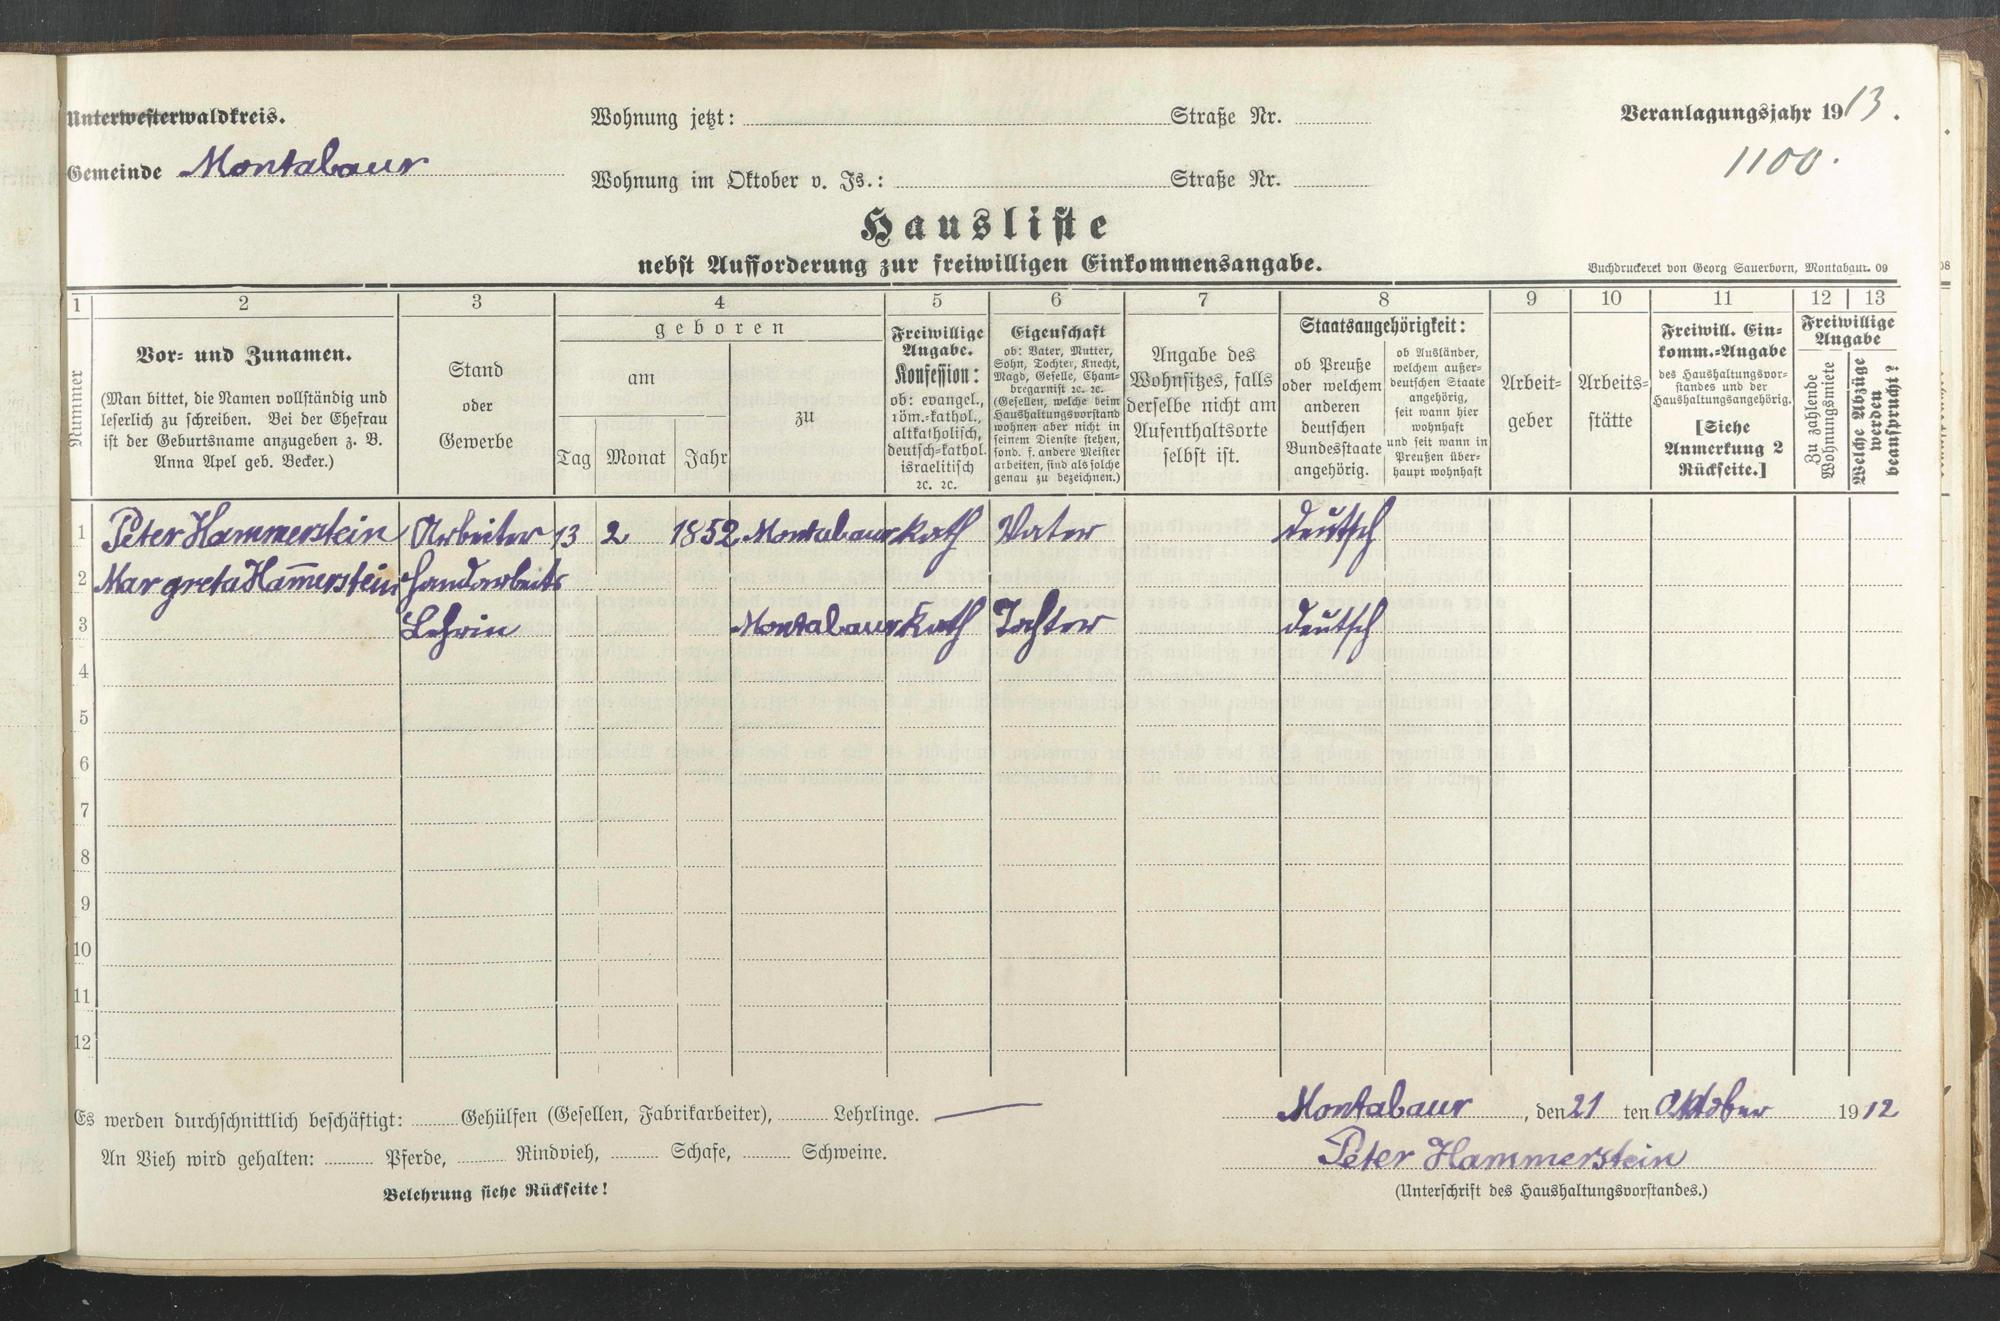 Unterwesterwaldkreis.
Wohnung jetzt: Straße Nr.
Veranlagungsjahr 1913.
Gemeinde Montabaur
Wohnung im Oktober v. Js.: Straße Nr.
1100.
Hausliste
nebst Aufforderung zur freiwilligen Einkommensangabe.
Buchdruckerei von Georg Sauerborn, Montabaur. 09
1 2 3 4 5 6 7 8 9 10 11 12 13
Nummer
Vor- und Zunamen.
(Man bittet, die Namen vollständig und
leserlich zu schreiben. Bei der Ehefrau
ist der Geburtsname anzugeben z. B.
Anna Apel geb. Becker.)
Stand
oder
Gewerbe
geboren
am
Tag Monat Jahr
zu
Freiwillige
Angabe.
Konfession:
ob: evangel.,
röm.-kathol.,
altkatholisch,
deutsch-kathol.
israelitisch
2c. 2c.
Eigenschaft
ob: Vater, Mutter,
Sohn, Tochter, Knecht,
Magd, Geselle, Cham-
bregarnist 2c. 2c.
(Gesellen, welche beim
Haushaltungsvorstand
wohnen aber nicht in
seinem Dienste stehen,
sond. f. andere Meister
arbeiten, sind als solche
genau zu bezeichnen.)
Angabe des
Wohnsitzes, falls
derselbe nicht am
Aufenthaltsorte
selbst ist.
Staatsangehörigkeit:
ob Preuße
oder welchem
anderen
deutschen
Bundesstaate
angehörig.
ob Ausländer,
welchem außer-
deutschen Staate
angehörig,
seit wann hier
wohnhaft
und seit wann in
Preußen über-
haupt wohnhaft
Arbeit-
geber
Arbeits-
stätte
Freiwill. Ein-
komm.-Angabe
des Haushaltungsvor-
standes und der
Haushaltungsangehörig.
[Siehe
Anmerkung 2
Rückseite.]
Freiwillige
Angabe
Zu zahlende
Wohnungsmiete
Welche Abzüge
werden
beansprucht?
1 Peter Hammerstein Arbeiter 13 2 1852 Montabaur kath Vater deutsch
2 Margreta Ham̅erstein Handarbeits
3 Lehrin Montabaur Kath Tochter deutsch
4
5
6
7
8
9
10
11
12
Es werden durchschnittlich beschäftigt: Gehülfen (Gesellen, Fabrikarbeiter), Lehrlinge.
Montabaur, den 21 ten Oktober 1912
An Vieh wird gehalten: Pferde, Rindvieh, Schafe, Schweine.
Peter Hammerstein
Belehrung siehe Rückseite!
(Unterschrift des Haushaltungsvorstandes.)